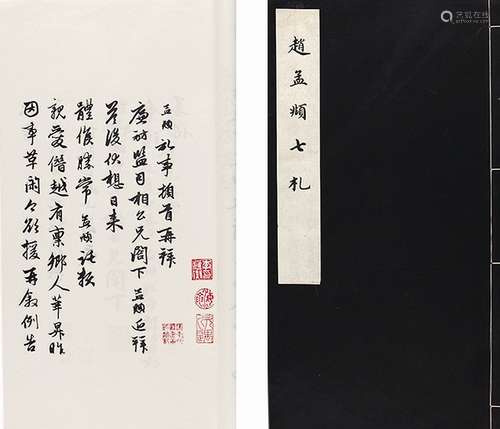 趙孟頫七札
孟頫記事頓首再拜
廉訪監司相公兄閣下孟頫近拜
答後伏想日来
體候勝常孟頫託契
親愛僭越有禀鄉人華昇昨
因事草閑今欲援再敘例告